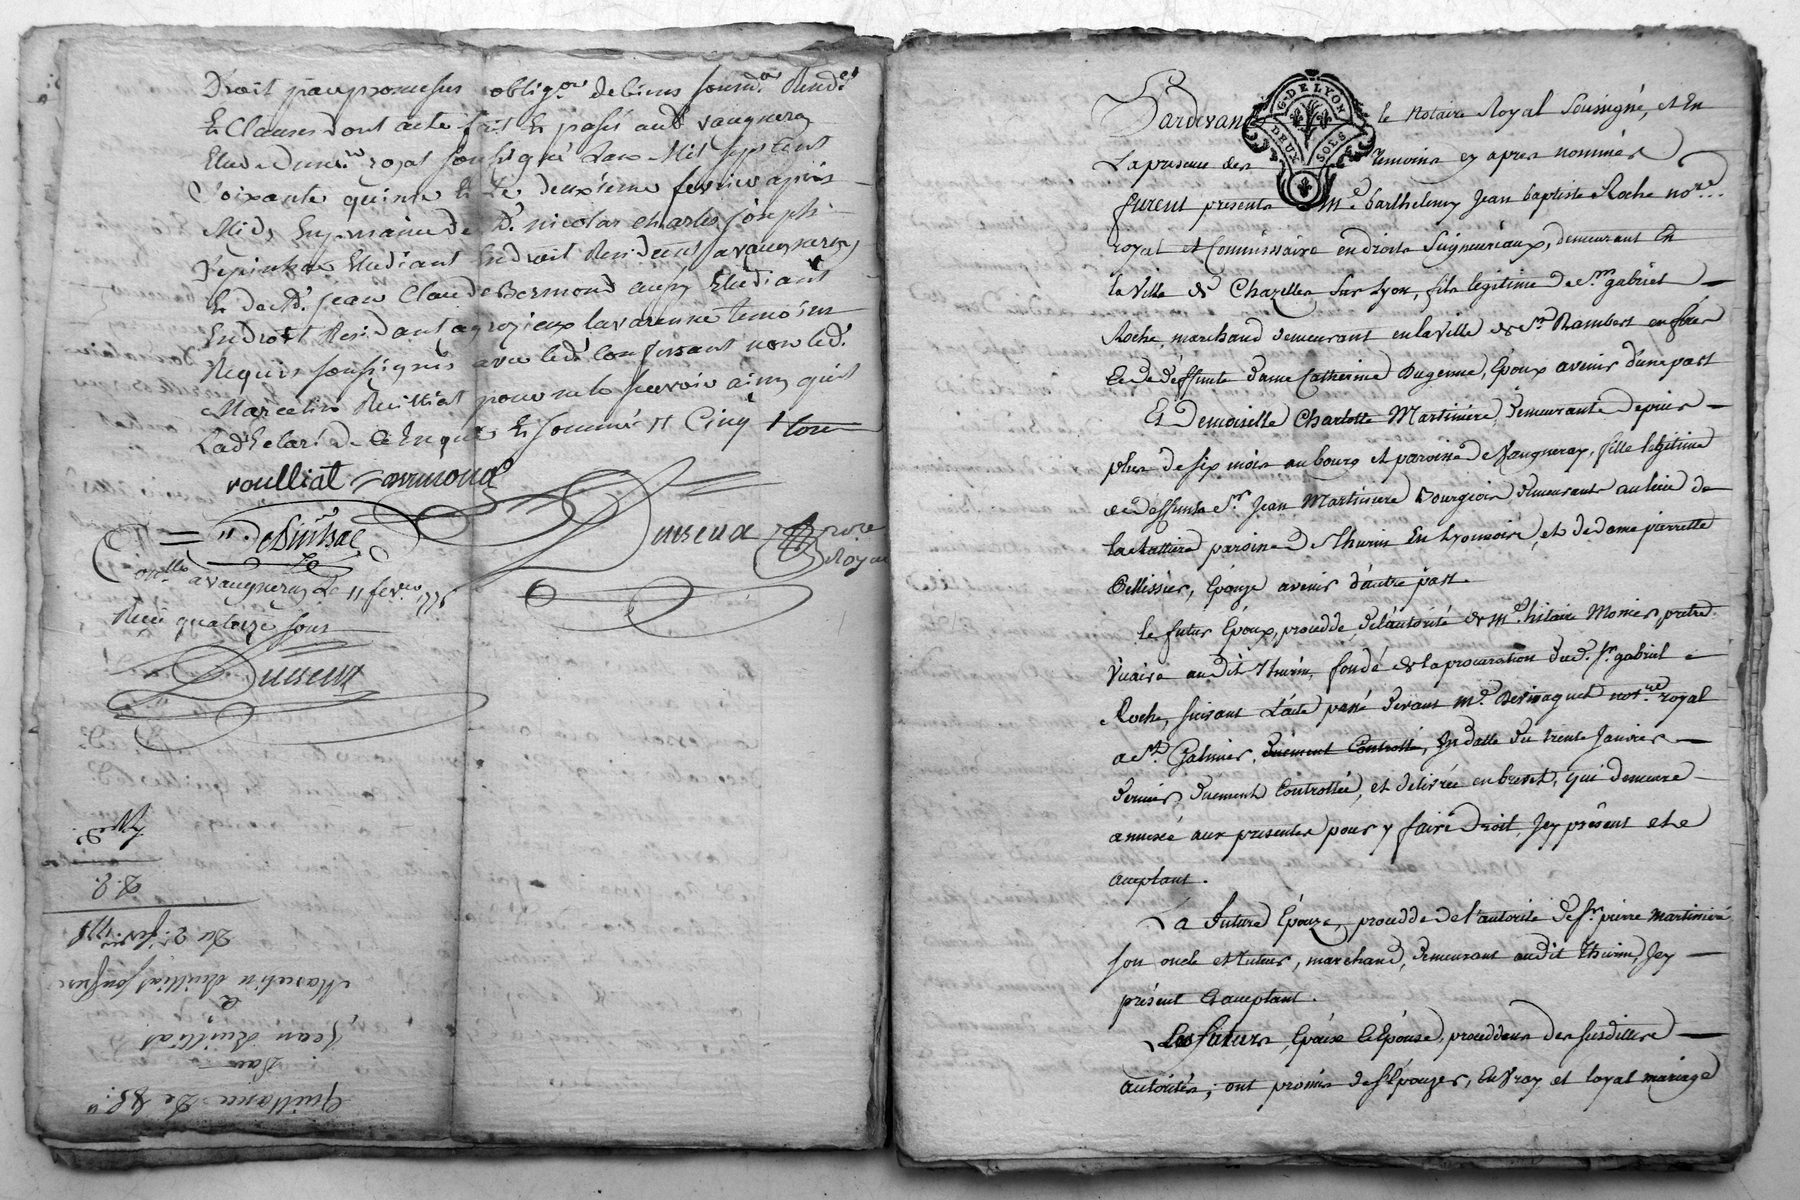 Droit par promesses oblig.on de biens soum.on Rend.on
Et Clauses dont acte fait Et passé aud vaugneray
Etude du no.re royal soussigné L'an Mil sept cent
Soixante quinze Et Le deuxième fevrier après
Midy En presence de S.r nicolas charles joseph
Etudiant En droit Resident a vaugneray
Et de S.r jean Claude Bermond aussy Etudiant
En droit Residant a grezieux lavarenne temoins
Requis soussignés avec led. confessant non led.
Marcelin Rulliat pour ne le sçavoir ainsy qu'il
L'a declaré de ce Enquis Et sommé Cinq
roulliat Bermond
Duseux no.re Royal
Con.llé a vaugneray Le 11 fev.er 1775
Reçu quatorze sous
Duseux
Quittance De 85.#
Par
Jean Rulliat
a
Marcelin Rulliat son frere
Du 2.e fev.er 1775
Pardevant le Notaire Royal Soussigné, et En
La presence des Temoins cy après nommés
furent presents M.e Barthelemy Jean baptiste Roche no.re
royal et Commissaire en droits Seigneuriaux, demeurant En
la Ville de Chazelles sur Lyon, fils legitime de s.r gabriel
Roche, marchand demeurant en la Ville de S.t Rambert en forès
Et de deffunte dame Catherine Dugenne, Epoux avenir d'une part
Et Demoiselle Charlotte Martiniere, demeurante depuis
plus de six mois au bourg et paroisse de Vaugneray, fille legitime
de deffunt s.r Jean Martiniere Bourgeois demeurant au lieu de
la chattiere paroisse de Thurin En Lyonnois, et de dame pierrette
Bellissier, Epouze avenir d'autre part
le futur Epoux, procedde de l'autorité de M.e hilaire Monier, pretre
Vicaire audit Thurin, fondé de la procuration dud. s.r gabriel
Roche, suivant L'acte passé devant M.e no.re royal
a S.t Galmier, duement Controllé, En datte du trente Janvier
dernier, duement Controllée, et delivrée en brevet, qui demeure
annexé aux presentes pour y faire droit, Jcy présent et
acceptant.
La future Epouze, procedde de l'autorité de s.r pierre Martiniere
son oncle et tuteur, marchand, demeurant audit Thurin, Jcy
présent et acceptant.
Les futurs Epoux et Epouse, proceddens des susdittes
autorités, ont promis de s'Epouzer, En vray et loyal mariage
G. DE LYON
DEUX SOLS